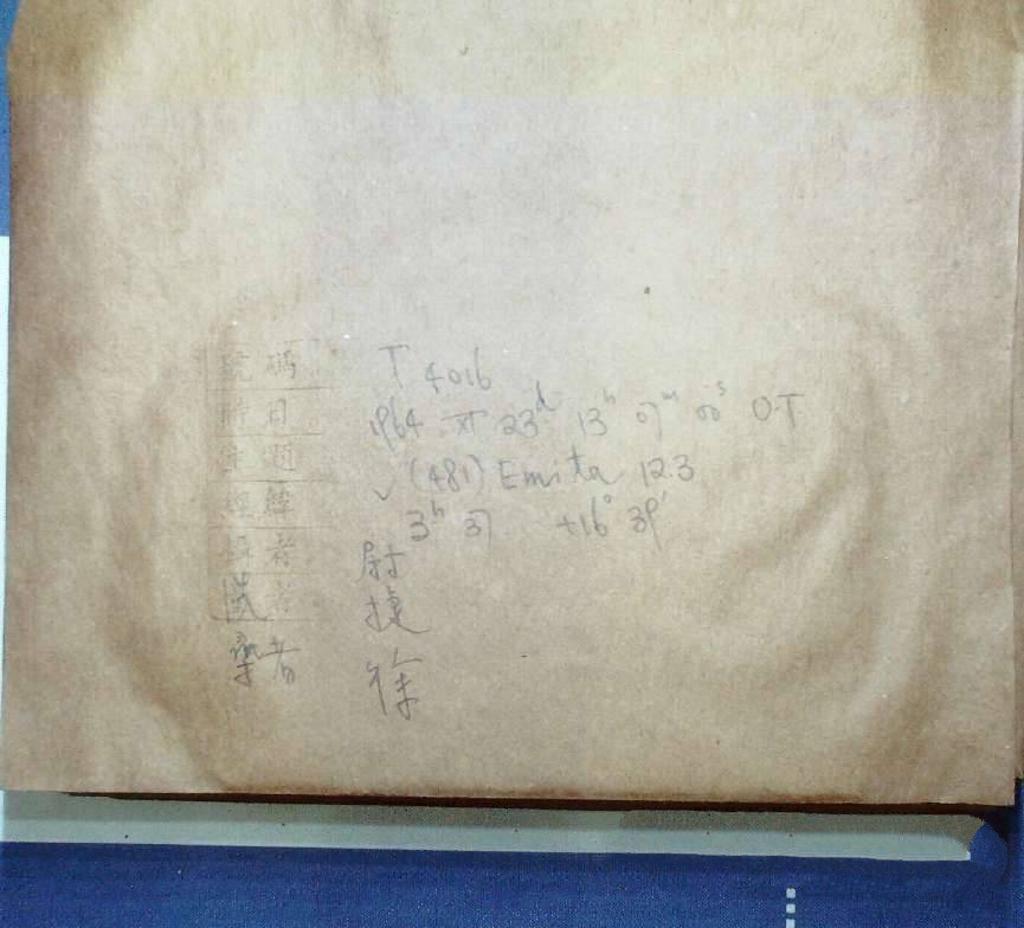 號碼 T 4016
時日 1964 XI 23d 13h 07m 00s O.T
主題 (481) Emita 12.3
經緯 3h 37 +16° 39'
者 尉
者 捷
者 徐